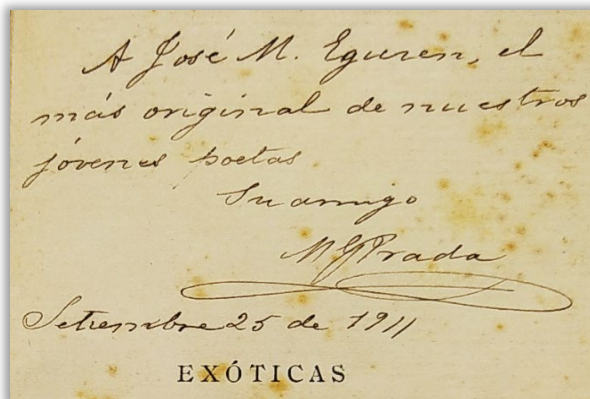 A José M. Eguren, el
más original de nuestros
jóvenes poetas
Su amigo
M G Prada
Setiembre 25 de 1911
EXÓTICAS